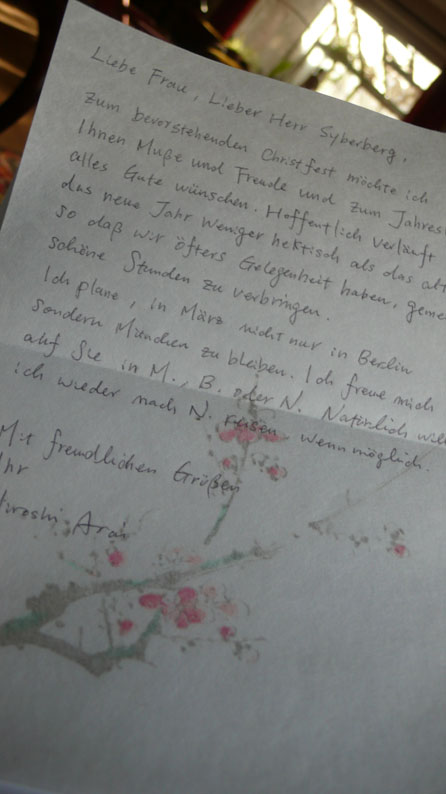 Liebe Frau, Lieber Herr Syberberg,
zum bevorstehenden Christfest möchte ich
Ihnen Muße und Freude und zum Jahres
alles Gute wünschen. Hoffentlich verläuft
das neue Jahr weniger hektisch als das alt
so daß wir öfters Gelegenheit haben, geme
schöne Stunden zu verbringen.
Ich plane, in März nicht nur in Berlin
sondern München zu bleiben. Ich freue mich
auf Sie in M., B. oder N. Natürlich will
ich wieder nach N. reisen wenn möglich.
Mit freundlichen Grüßen
Ihr
Hiroshi Arai